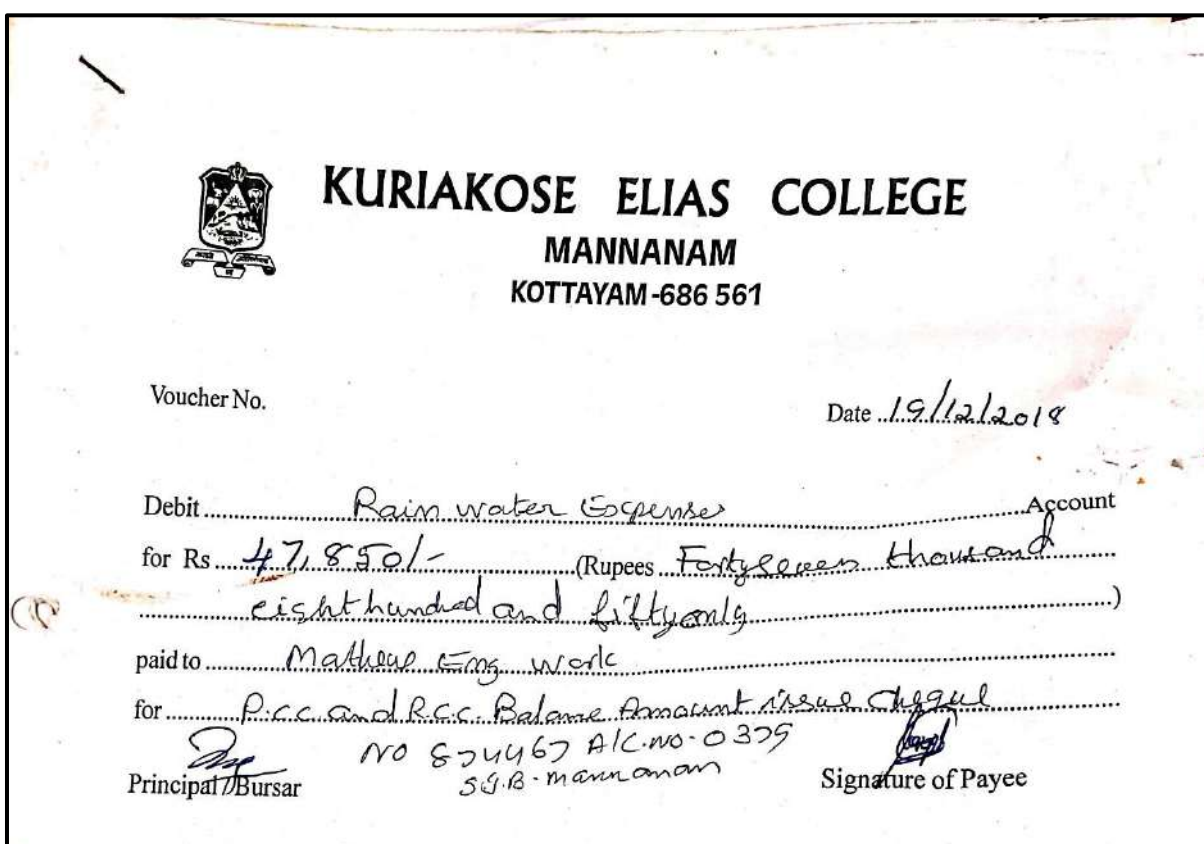 KURIAKOSE ELIAS COLLEGE
MANNANAM
KOTTAYAM-686 561
Voucher No.
Date 19/12/2018
Debit Rain water Expenses Account
for Rs 47,850/- (Rupees Forty seven thousand
eight hundred and fifty only)
paid to Mathews Eng work
for P.C.C. and R.C.C. Balance Amount issue cheque
NO 874467 A/C.NO-0375
S.J.B-Mannanam
Principal / Bursar
Signature of Payee